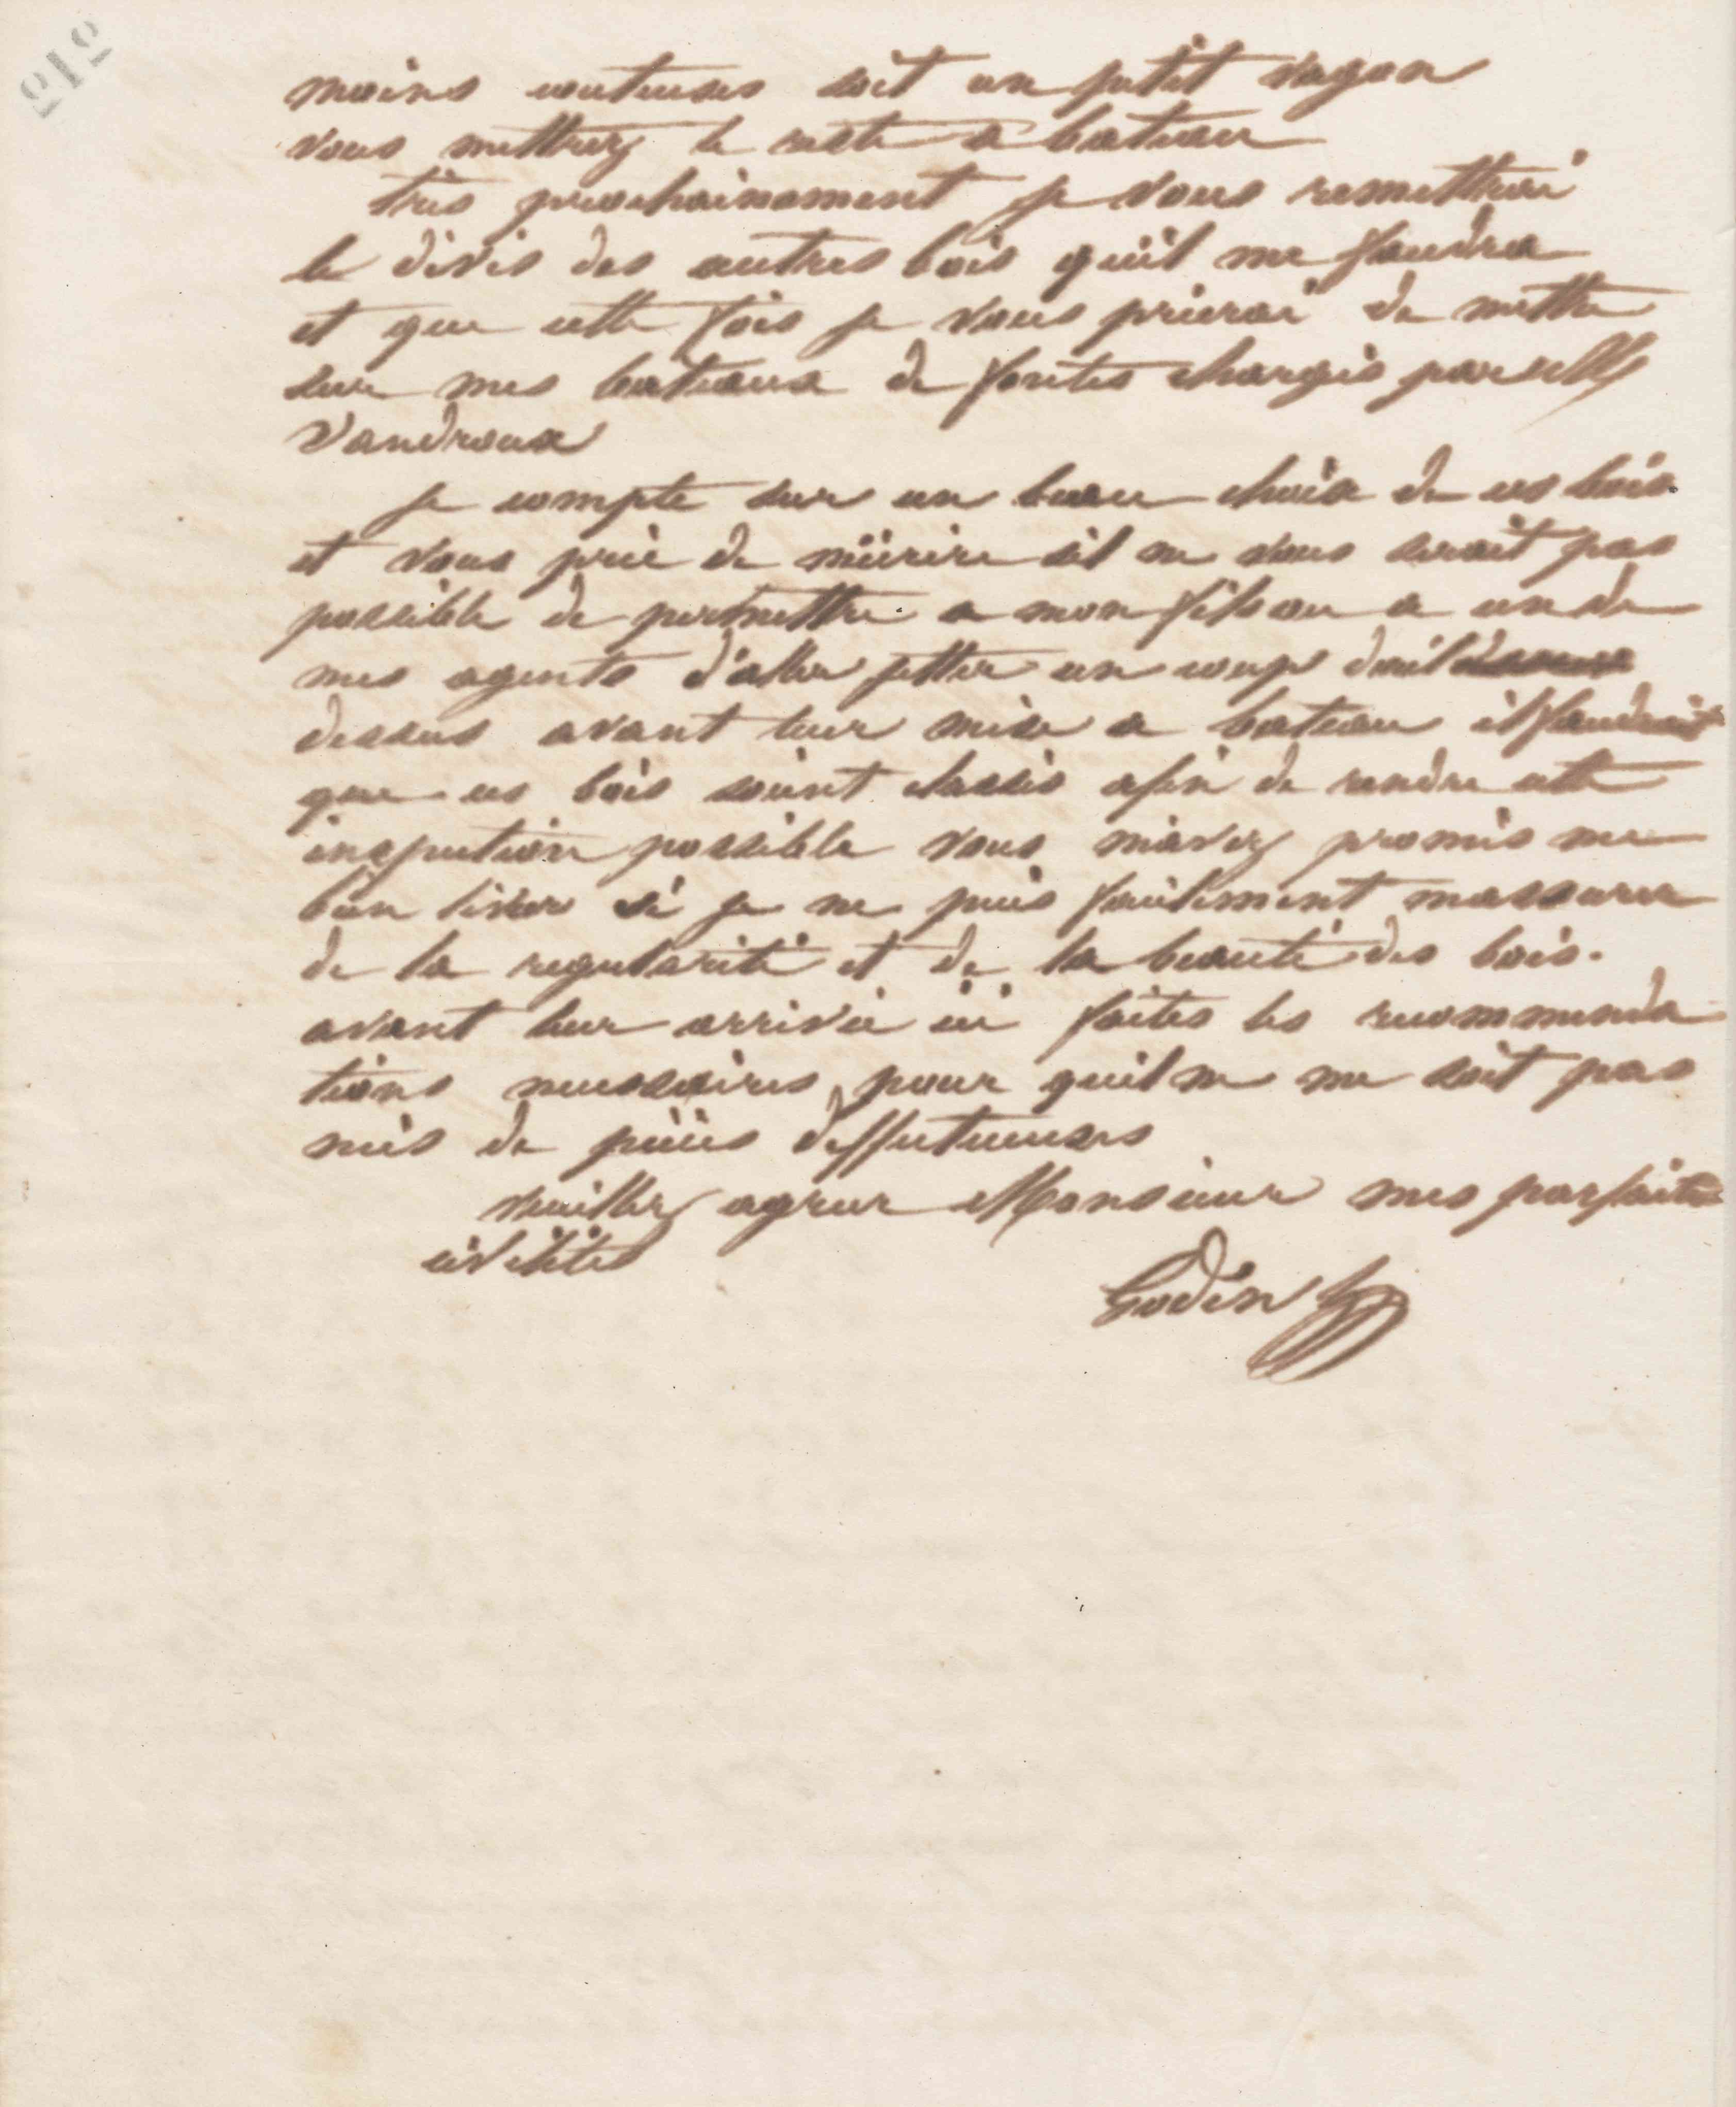 212
moins couteuses soit un petit wagon
vous mettrez le reste a bateau
très prochainement je vous remettrai
le dévis des autres bois qu'il me faudra
et que cette fois je vous prierai de mettre
sur mes bateaux de fontes chargés par MM
Vandroux
je compte sur un beau choix de ces bois
et vous prie de m'écrire s'il ne vous serait pas
possible de permettre a mon fils ou a un de
mes agents d'aller jetter un coup d'œil
dessus avant leur mise a bateau il faudrait
que ces bois soient classés afin de rendre cette
inspection possible vous m'avez promis me
bien livrer si je ne puis facilement massurer
de la regularité et de la beauté des bois.
avant leur arrivée ici faites les recommenda
tions necessaires pour quil ne me soit pas
mis de pièces deffectueuses
veuillez agreer Monsieur mes parfaites
civilités
Godin